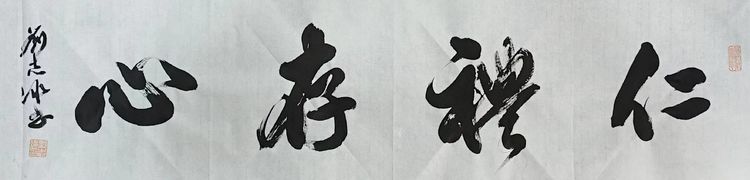 仁禮存心